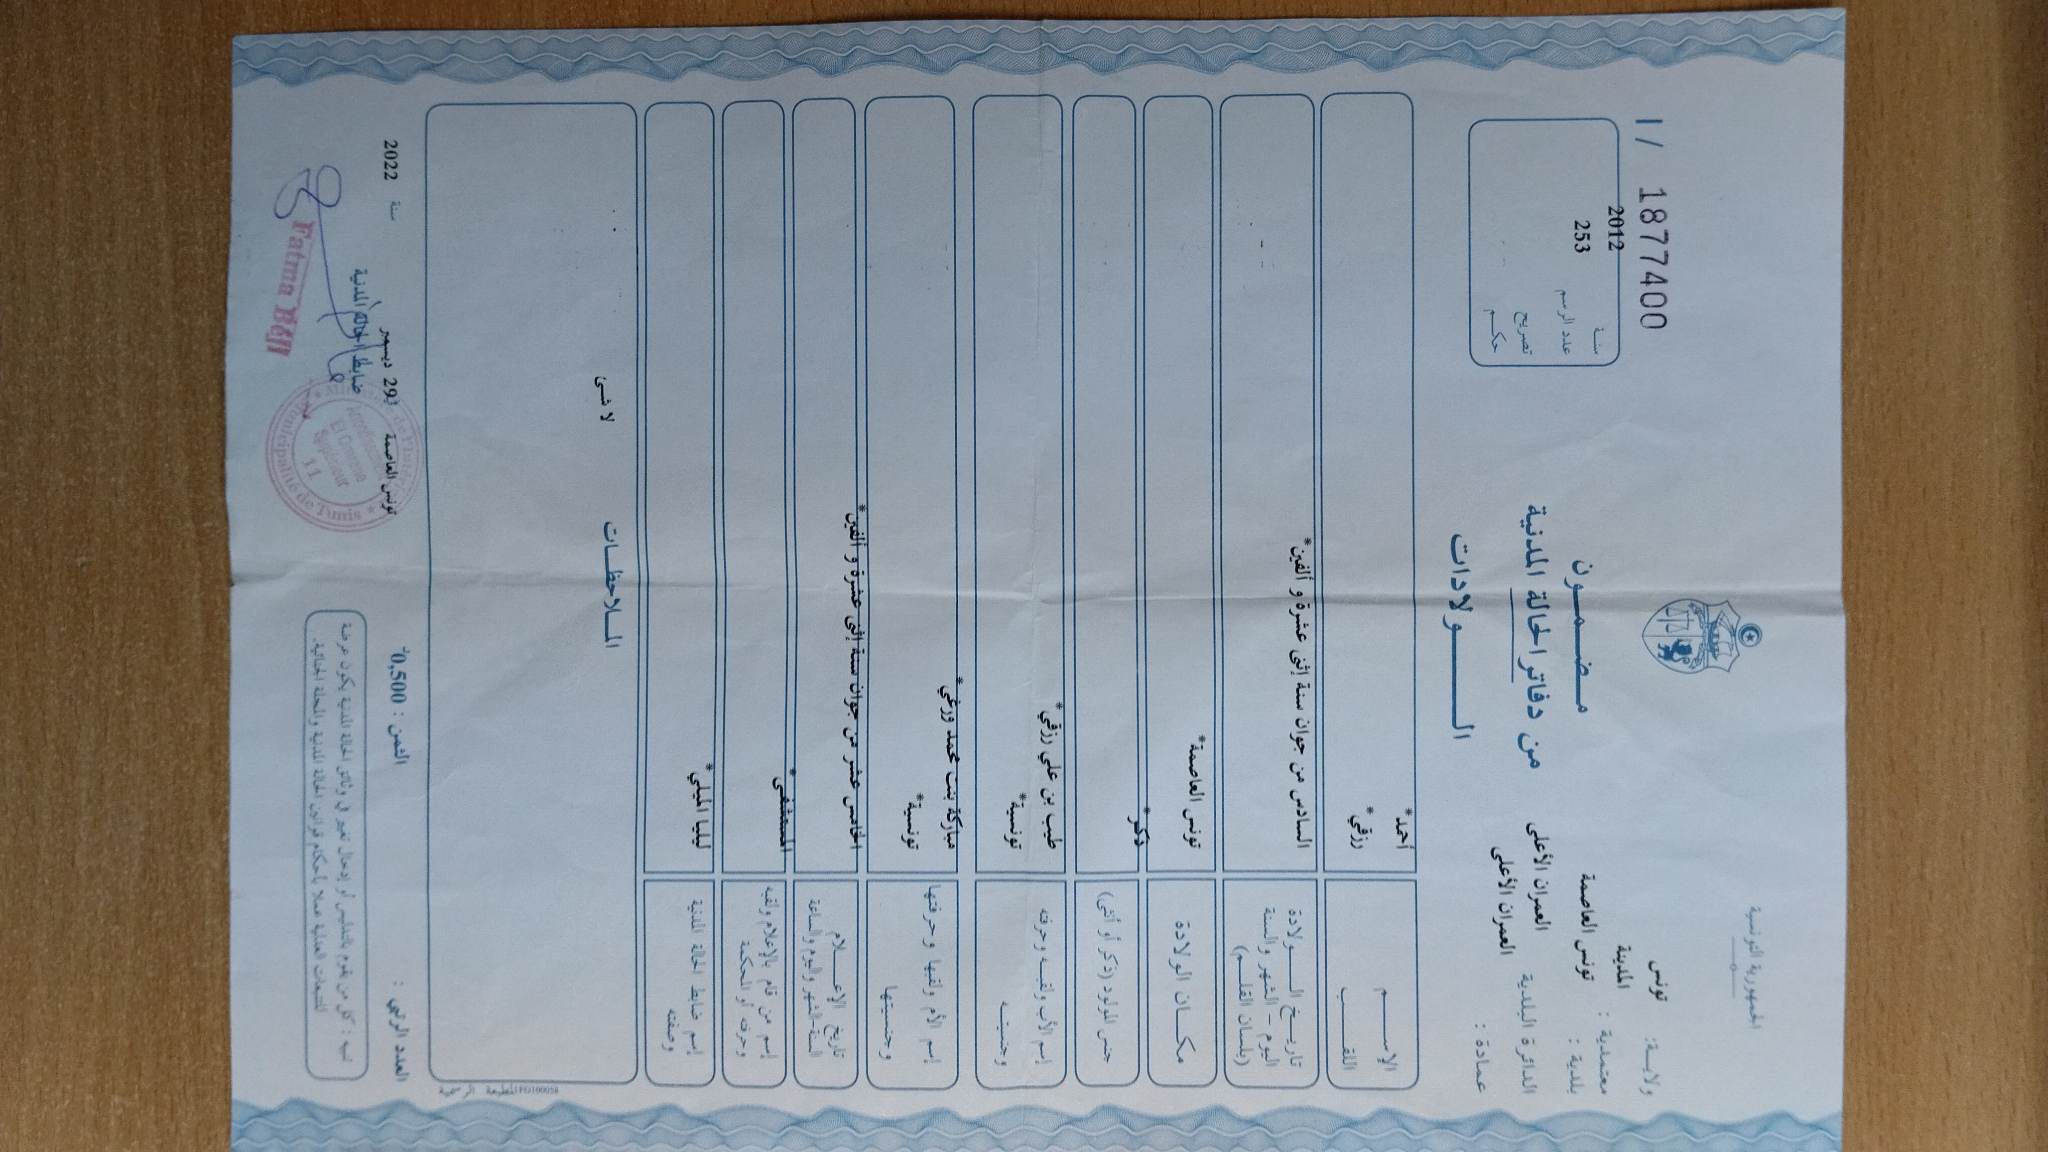 الجمهورية التونسية
ولايـة: تونس
معتمدية : المدينة
بلدية : تونس العاصمة
الدائرة البلدية العمران الأعلى
عمادة : العمران الأعلى
I/ 1877400
سنـة 2012
عدد الرسم 253
تصريح
حكـم
مـضـمـون
من دفاتر الحالة المدنية
الـــولادات
الإســـم أحمد*
اللقـــب رزقي*
تاريـخ الـــولادة السادس من جوان سنة إثنى عشرة و ألفين*
اليوم - الشهر والسنة
(بلسان القلـم)
مكـــان الولادة تونس العاصمة*
جنس المولود (ذكر أو أنثى) ذكر*
إسم الأب ولقبـه وحرفته طيب بن علي رزقي*
وجنسيتـه تونسية*
إسم الأم ولقبها وحرفتها مباركة بنت محمد ورغي*
وجنسيتها تونسية*
تاريخ الإعـــلام الخامس عشر من جوان سنة إثنى عشرة و ألفين*
السنة-الشهر واليوم والساعة
إسم من قام بالإعلام ولقبه المستشفى*
وحرفته أو المحكمة
إسم ضابط الحالة المدنية ليليا الميلي*
وصفته
المـلاحظـات
لا شئ
المطبعة الرسمية
العدد الرتبي :
الثمن : 0,500د
تونس العاصمة في29 ديسمبر سنة 2022
ضابط الحالة المدنية
Fatma Béji
Municipalité de Tunis
Arrondissement
El Omrane
Supérieur
11
تنبيه : كل من يقوم بالتدليس أو إدخال تغيير في وثائق الحالة المدنية يكون عرضة
للتتبعات العدلية عملا بأحكام قوانين الحالة المدنية والمجلة الجنائية.